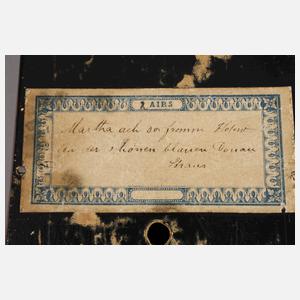 2 AIRS
Martha ach so fromm Flotow
an der schönen blauen Donau
Straus